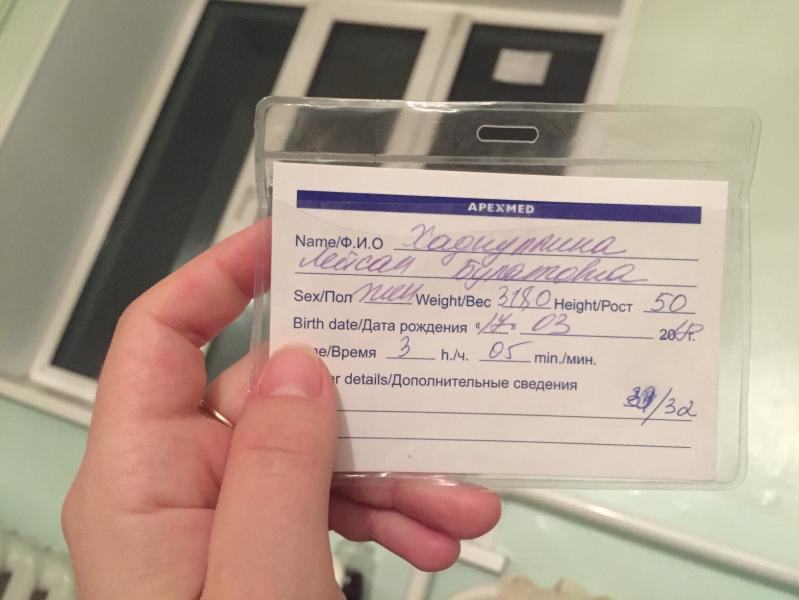 APEXMED
Name/Ф.И.О
Лейсан Булатовна
Sex/Пол жен Weight/Вес 3180 Height/Рост 50
Birth date/Дата рождения "17" 03 20 г.
e/Время 3 h./ч. 05 min./мин.
er details/Дополнительные сведения
/32